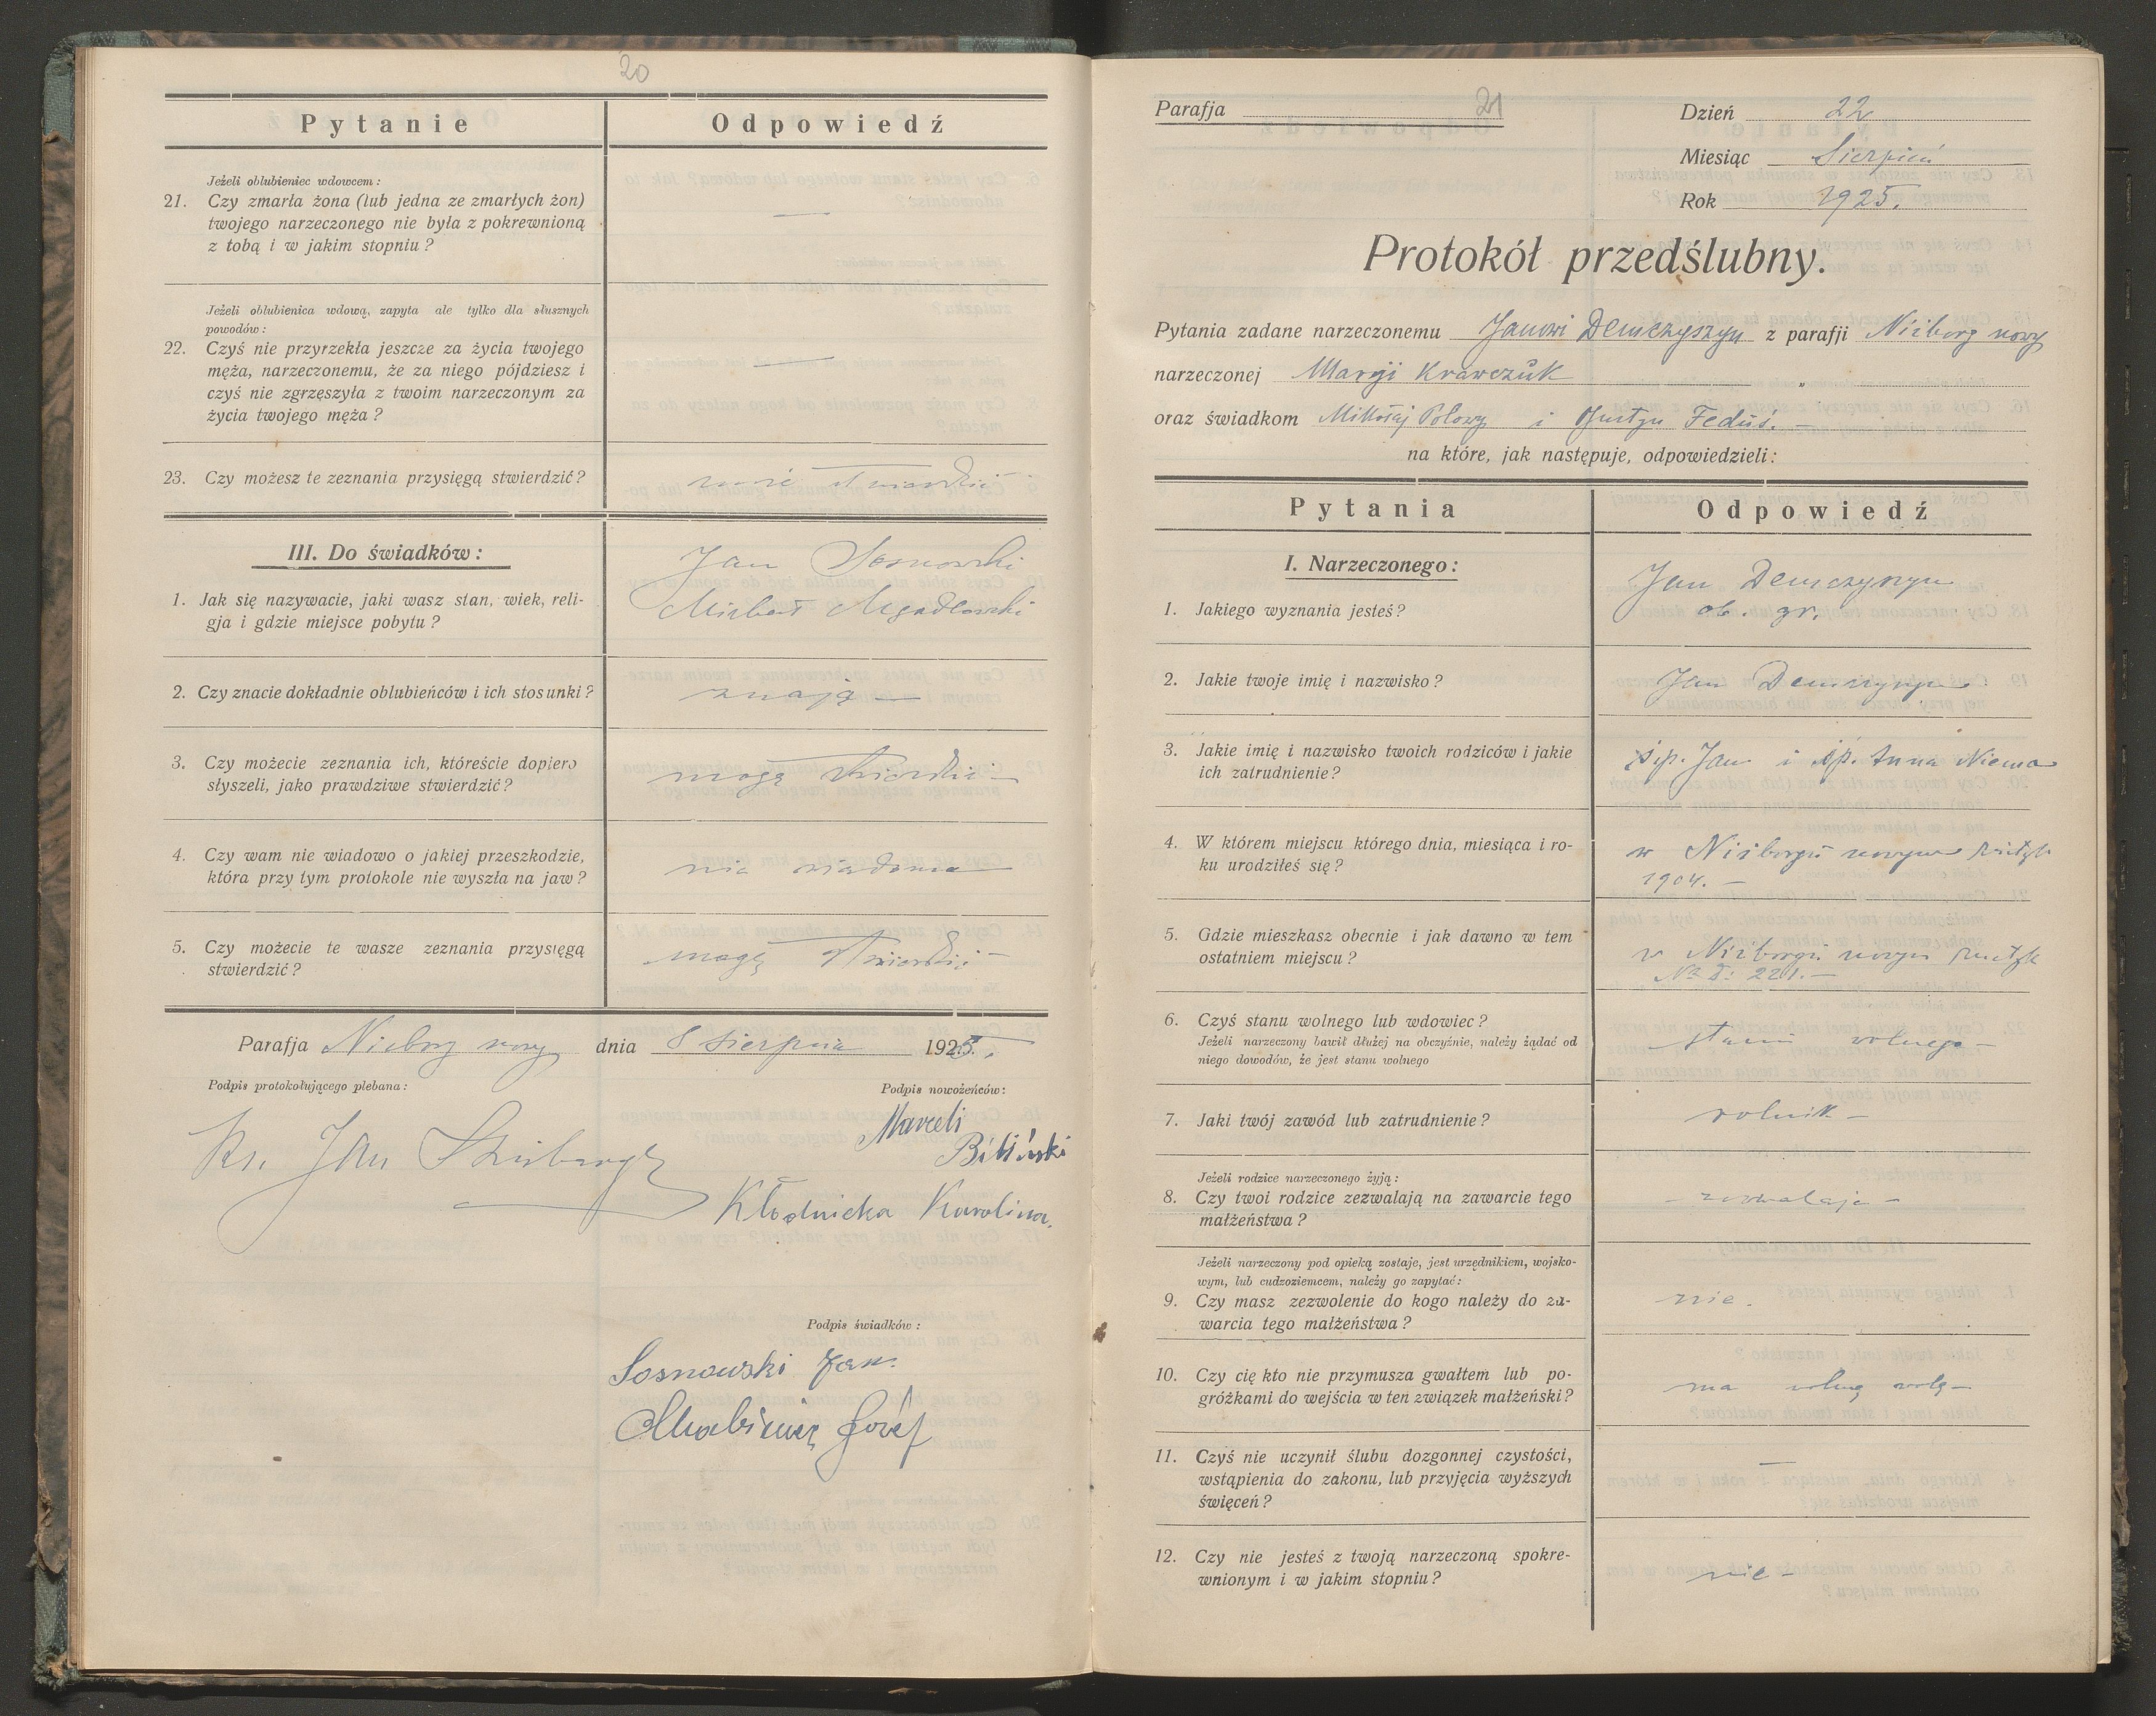 20
Pytanie
Odpowiedź
Jeżeli oblubieniec wdowcem:
21. Czy zmarła żona (lub jedna ze zmarłych żon)
twojego narzeczonego nie była z pokrewnioną
z tobą i w jakim stopniu?
—
Jeżeli oblubienica wdową, zapyta ale tylko dla słusznych
powodów:
22. Czyś nie przyrzekła jeszcze za życia twojego
męża, narzeczonemu, że za niego pójdziesz i
czyś nie zgrzęszyła z twoim narzeczonym za
życia twojego męża?
—
23. Czy możesz te zeznania przysięgą stwierdzić?
stwierdzić
III. Do świadków:
Jan Sosnowski
Michał
1. Jak się nazywacie, jaki wasz stan, wiek, reli-
gja i gdzie miejsce pobytu?
2. Czy znacie dokładnie oblubieńców i ich stosunki?
znają —
3. Czy możecie zeznania ich, któreście dopiero
słyszeli, jako prawdziwe stwierdzić?
mogą stwierdzić —
4. Czy wam nie wiadowo o jakiej przeszkodzie,
która przy tym protokole nie wyszła na jaw?
nie wiadomo
5. Czy możecie te wasze zeznania przysięgą
stwierdzić?
mogą stwierdzić —
Parafja Niżborg nowy dnia 8 sierpnia 1925.
Podpis protokołującego plebana:
Podpis nowożeńców:
Ks. Jan
Marceli
Biliński
Kłodnicka Karolina.
Podpis świadków:
Sosnowski Jan.
Józef
Parafja 21
Dzień 22
Miesiąc Sierpień
Rok 1925.
Protokół przedślubny.
Pytania zadane narzeczonemu Janowi Demczyszyn z parafji Niżborg nowy
narzeczonej Maryi Krawczuk „
oraz świadkom Mikołaj Połowy i Justyn Feduś. —
na które, jak następuje, odpowiedzieli:
Pytania
Odpowiedź
I. Narzeczonego:
Jan Demczyszyn
ob. gr.
1. Jakiego wyznania jesteś?
2. Jakie twoje imię i nazwisko?
Jan Demczyszyn
3. Jakie imię i nazwisko twoich rodziców i jakie
ich zatrudnienie?
śp. Jan i śp. Anna Niema
4. W którem miejscu którego dnia, miesiąca i ro-
ku urodziłeś się?
w Niżborgu nowym
1904. —
5. Gdzie mieszkasz obecnie i jak dawno w tem
ostatniem miejscu?
w Niżborgu nowym
No D: 221. —
6. Czyś stanu wolnego lub wdowiec?
Jeżeli narzeczony bawił dłużej na obczyźnie, należy żądać od
niego dowodów, że jest stanu wolnego
stanu wolnego —
7. Jaki twój zawód lub zatrudnienie?
rolnik —
Jeżeli rodzice narzeczonego żyją:
8. Czy twoi rodzice zezwalają na zawarcie tego
małżeństwa?
— zezwalają —
Jeżeli narzeczony pod opieką zostaje, jest urzędnikiem, wojsko-
wym, lub cudzoziemcem, należy go zapytać:
9. Czy masz zezwolenie do kogo należy do za-
warcia tego małżeństwa?
nie.
10. Czy cię kto nie przymusza gwałtem lub po-
gróżkami do wejścia w ten związek małżeński?
ma wolną wolę —
11. Czyś nie uczynił ślubu dozgonnej czystości,
wstąpienia do zakonu, lub przyjęcia wyższych
święceń?
—
12. Czy nie jesteś z twoją narzeczoną spokre-
wnionym i w jakim stopniu?
nie —